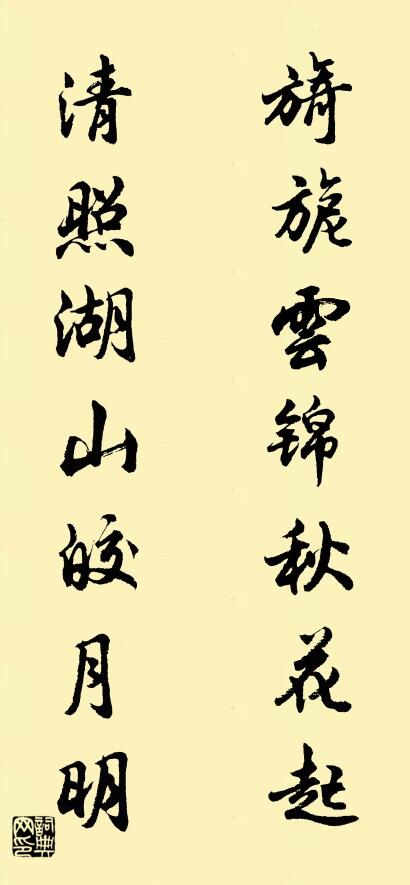 旖旎雲锦秋花起
清照湖山皎月明
詞典网印